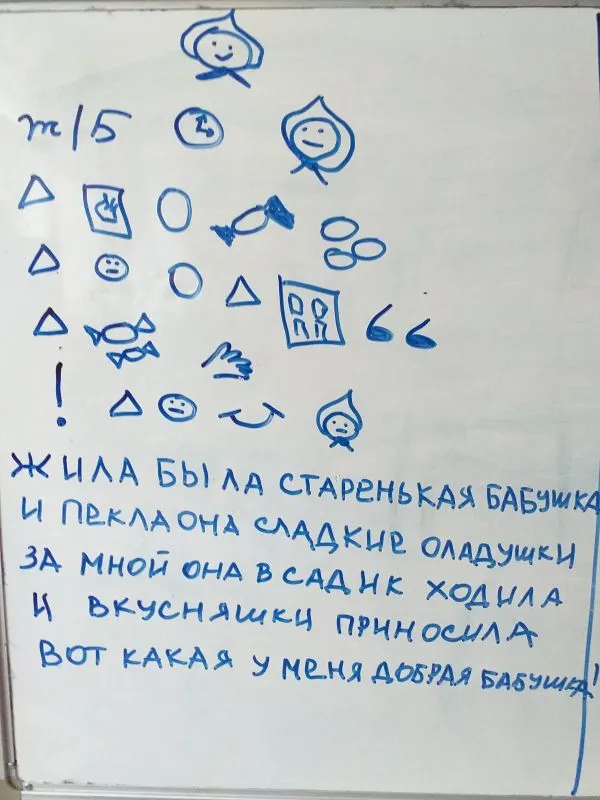 ж/Б
ЖИЛА БЫЛА СТАРЕНЬКАЯ БАБУШКА
И ПЕКЛА ОНА СЛАДКИЕ ОЛАДУШКИ
ЗА МНОЙ ОНА В САДИК ХОДИЛА
И ВКУСНЯШКИ ПРИНОСИЛА
ВОТ КАКАЯ У МЕНЯ ДОБРАЯ БАБУШКА!